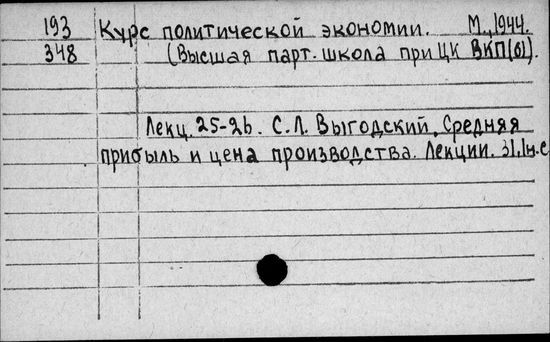 193 Курс политической экономии. М., 1944.
348 (Высшая парт. школа при ЦК ВКП(б)).
Лекц. 25-26. С.Л. Выгодский. Средняя
прибыль и цена производства. Лекции. 31,1н.с